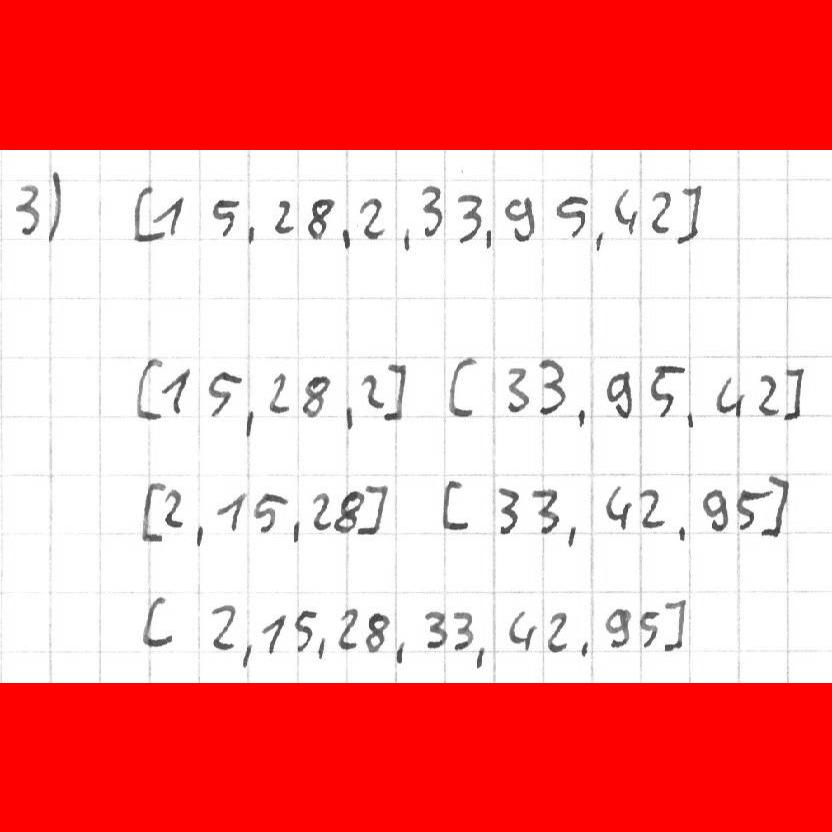 3) [15,28,2,33,95,42]
[15,28,2] [33,95,42]
[2,15,28] [33,42,95]
[2,15,28,33,42,95]